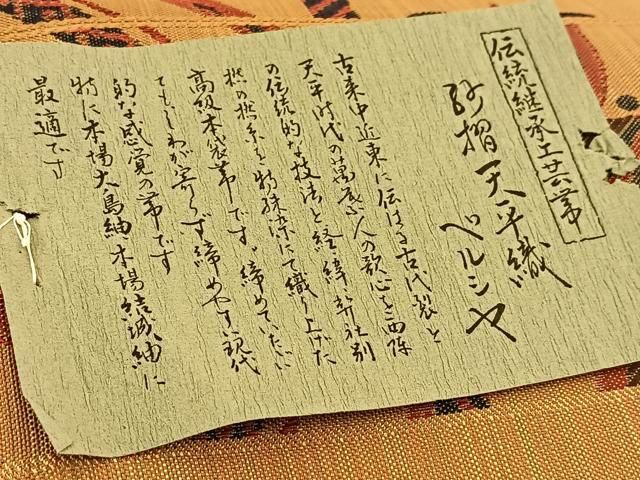 伝統継承工芸帯
砂摺天平織
ペルシャ
古来中近東に伝はる古代裂と
天平時代の萬葉人の歌心を西陣
の伝統的な技法と経緯弊社別
撚の撚糸を特殊 にて織り上げた
高級本袋帯です。締めていたい
てもしわが寄らず締めやすい現代
的な感覚の帯です
特に本場大島紬本場結城紬に
最適です